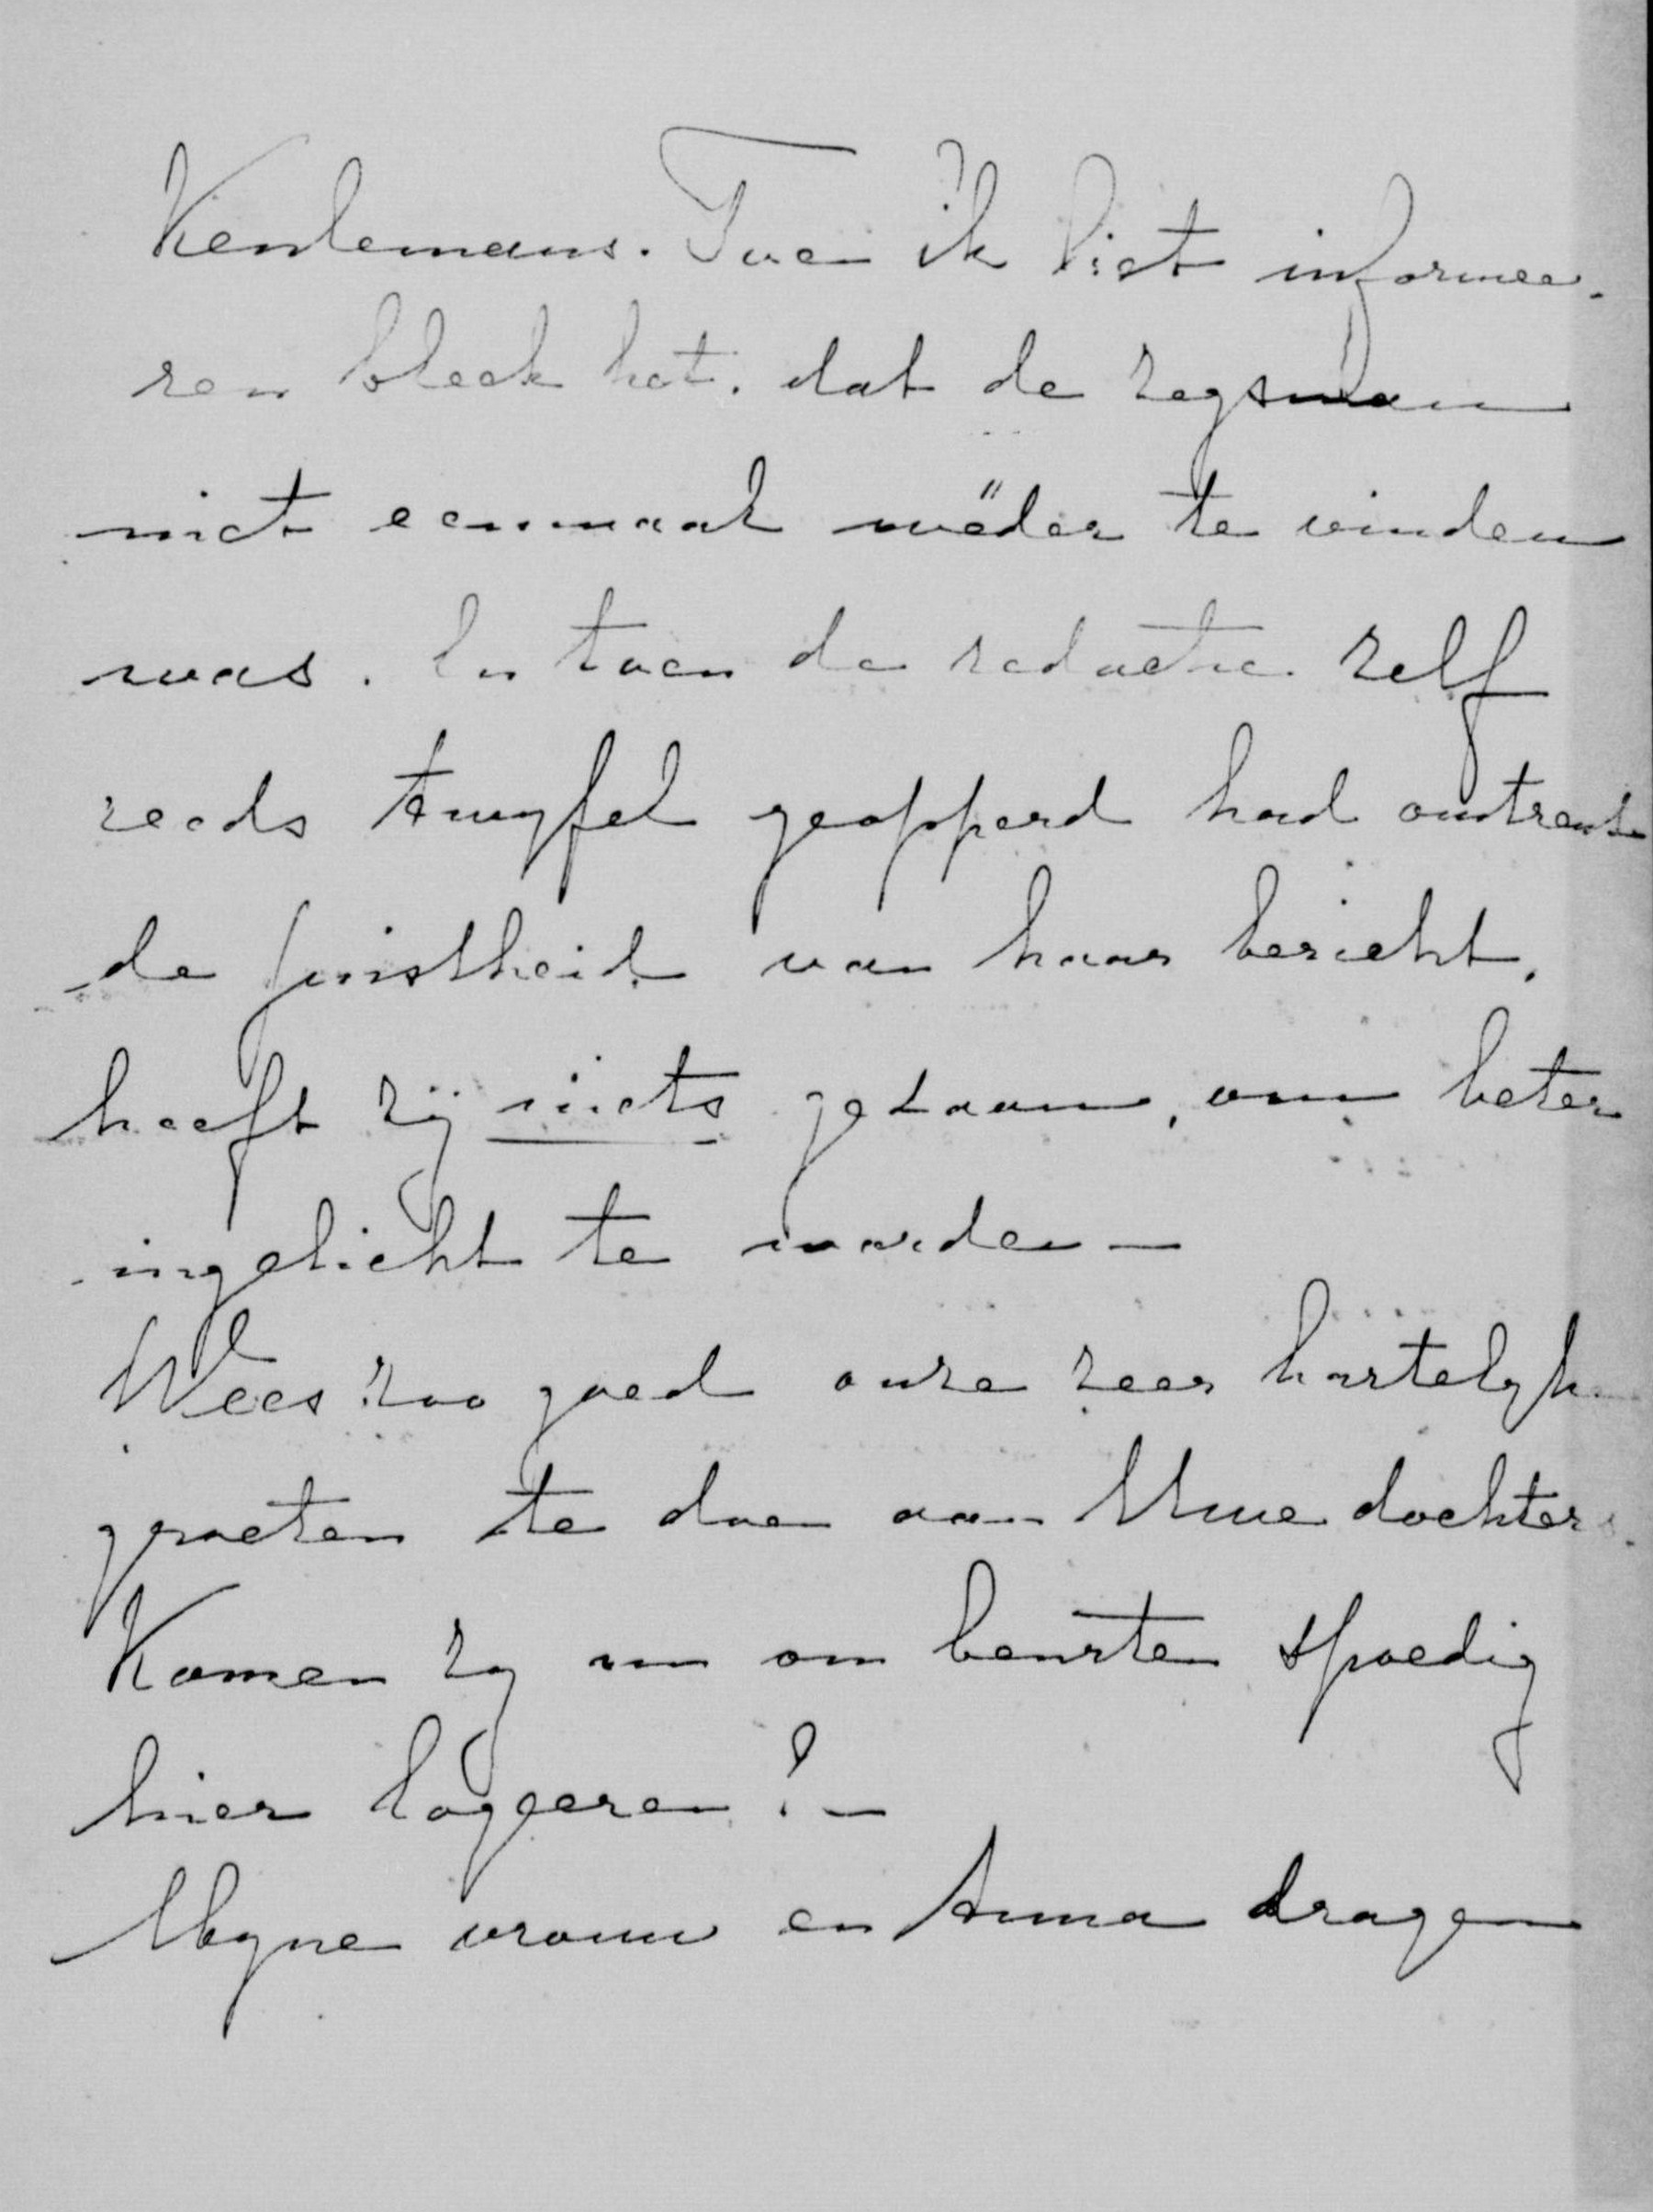 Keulemans. Toen ik liet informee-
ren bleek het, dat de zegsman
niet eenmaal wëder te vinden
was. En toen de redactie zelf
reeds twyfel geopperd had omtrent
de juistheid van haar bericht,
heeft zij niets gedaan, om beter
ingelicht te worden –
Wees zoo goed onze zeer hartelyke
groeten te doen aan Uwe dochters.
Komen zy nu om beurten spoedig
hier logeeren? –
Myne vrouw en Anna dragen